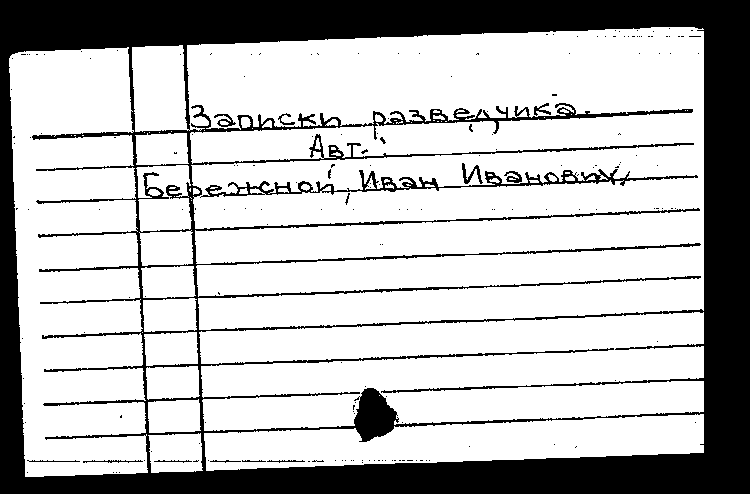 Записки разведчика.
Авт.:
Бережной, Иван Иванович,